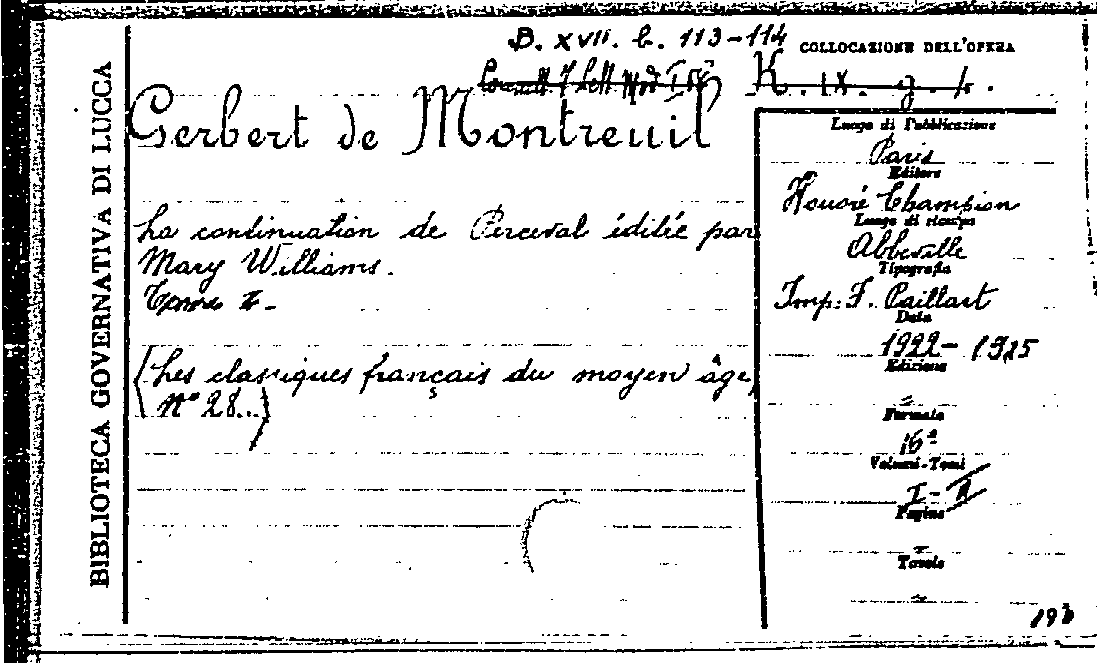 B. XVII. b. 113-114
COLLOCAZIONE DELL'OPERA
K. IX. g.
BIBLIOTECA GOVERNATIVA DI LUCCA
Gerbert de Montreuil
La continuation de Perceval éditée par
Mary Williams.
Tome I-
(Les classiques français du moyen âge,
N° 28...)
Luogo di Pubblicazione
Paris
Editore
Honoré Champion
Luogo di stampa
Abbeville
Tipografia
Imp: F. Paillart
Data
1922-1925
Edizione
Formato
16°
Volumi-Tomi
I-II
Pagine
Tavole